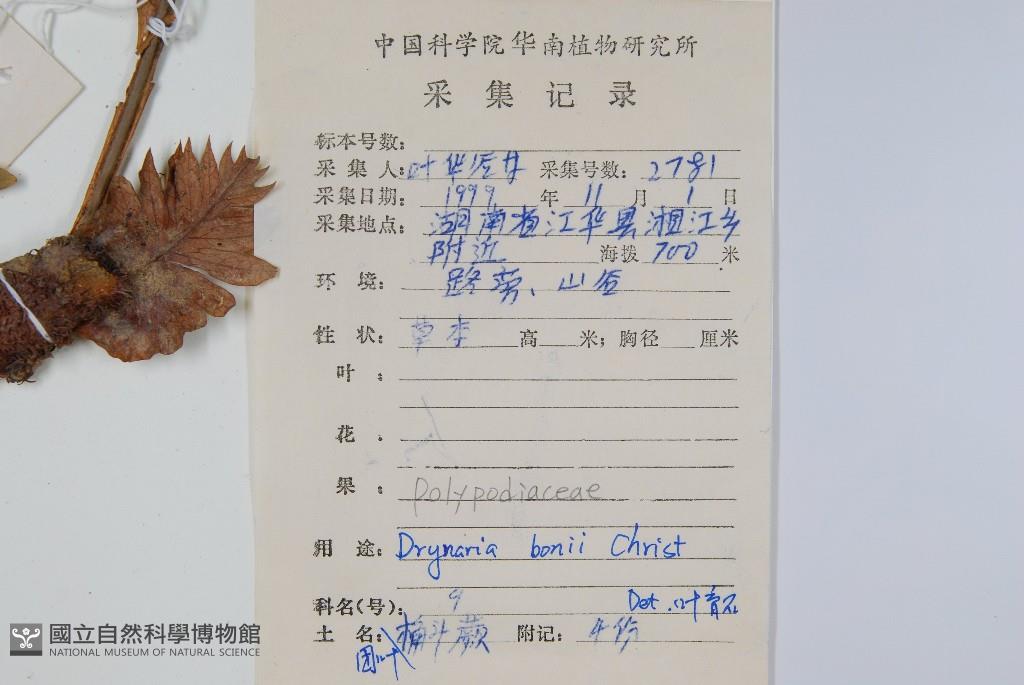 中国科学院华南植物研究所
采集记录
标本号数:
采集人: 叶华谷 采集号数: 2781
采集日期: 1999 年 11 月 1 日
采集地点: 湖南省江华县湘江乡
附近 海拨 700 米
环境: 路旁、山谷
性状: 草本 高 米; 胸径 厘米
叶:
花:
果: Polypodiaceae
用途: Drynaria bonii Christ
科名(号): 9 Det. 叶育石
土名: 团叶槲蕨 附记: 4份
國立自然科學博物館
NATIONAL MUSEUM OF NATURAL SCIENCE